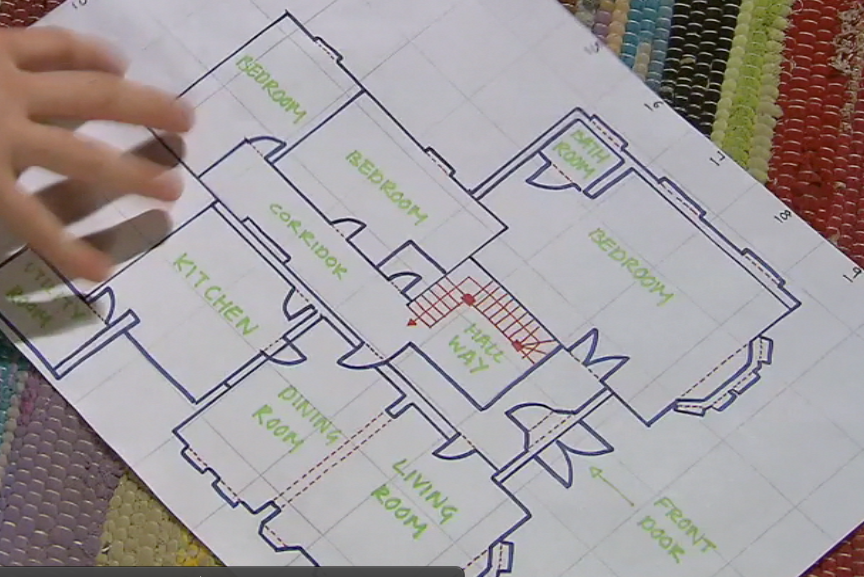 BEDROOM
BEDROOM
BATH
ROOM
BEDROOM
CORRIDOR
KITCHEN
UTILITY
ROOM
HALL
WAY
DINING
ROOM
LIVING
ROOM
FRONT
DOOR